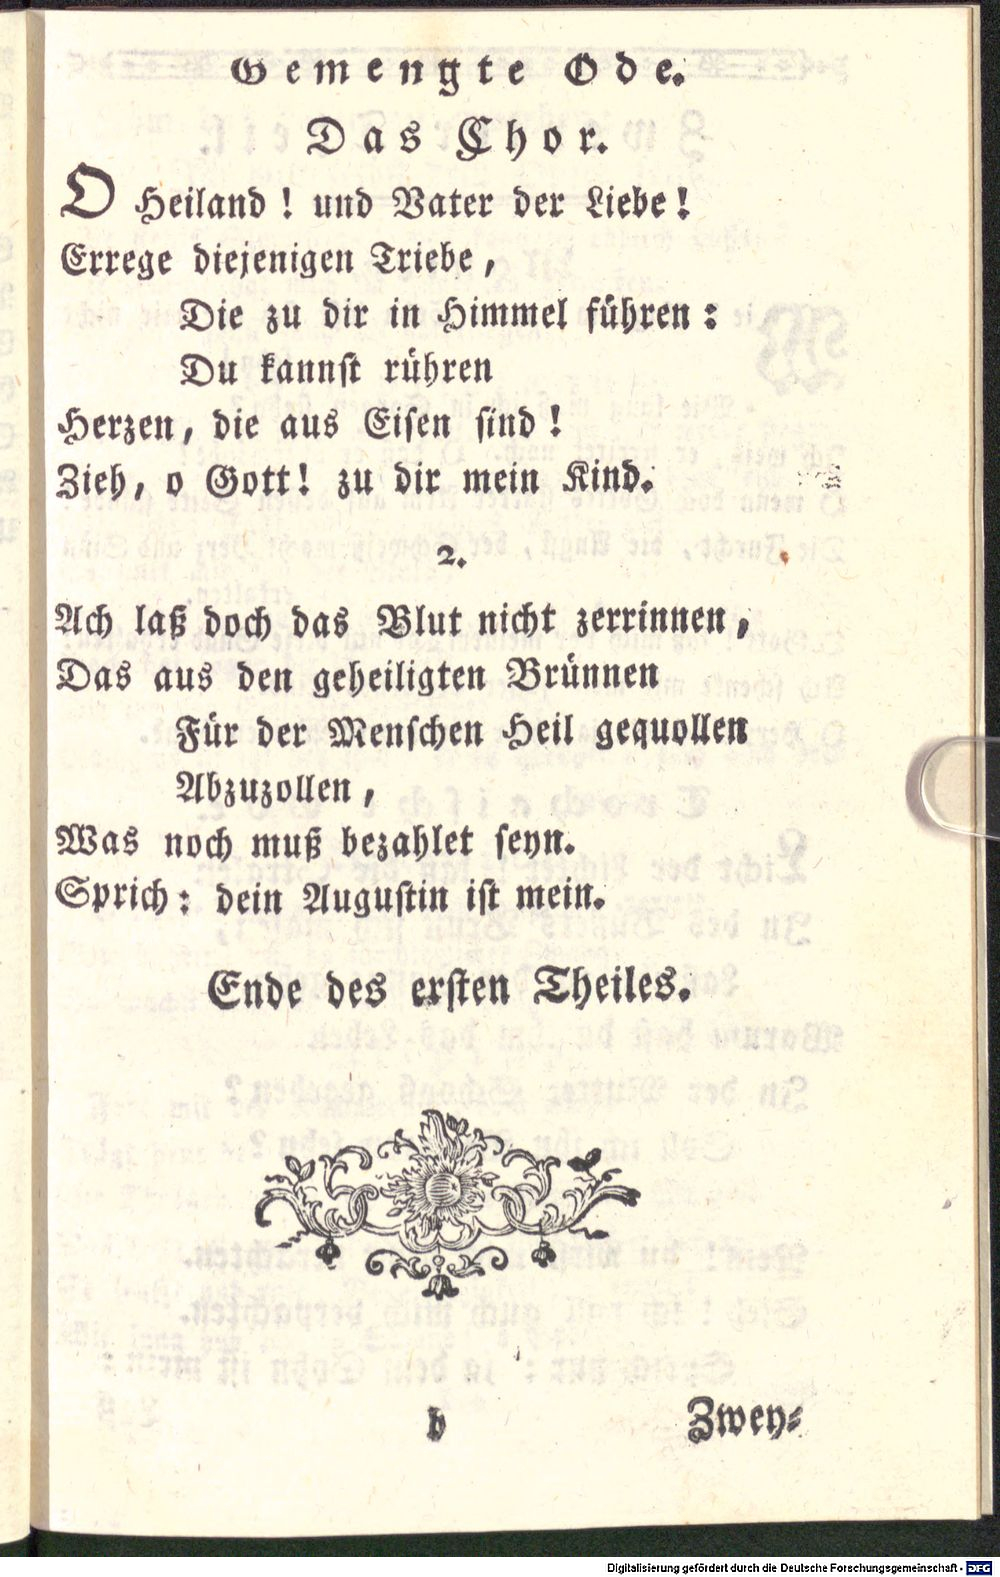 Gemengte Ode.
Das Chor.
O Heiland! und Vater der Liebe!
Errege diejenigen Triebe,
Die zu dir in Himmel führen:
Du kannst rühren
Herzen, die aus Eisen sind!
Zieh, o Gott! zu dir mein Kind.
2.
Ach laß doch das Blut nicht zerrinnen,
Das aus den geheiligten Brünnen
Für der Menschen Heil gequollen
Abzuzollen,
Was noch muß bezahlet seyn.
Sprich: dein Augustin ist mein.
Ende des ersten Theiles.
b
Zwey-
Digitalisierung gefördert durch die Deutsche Forschungsgemeinschaft - DFG